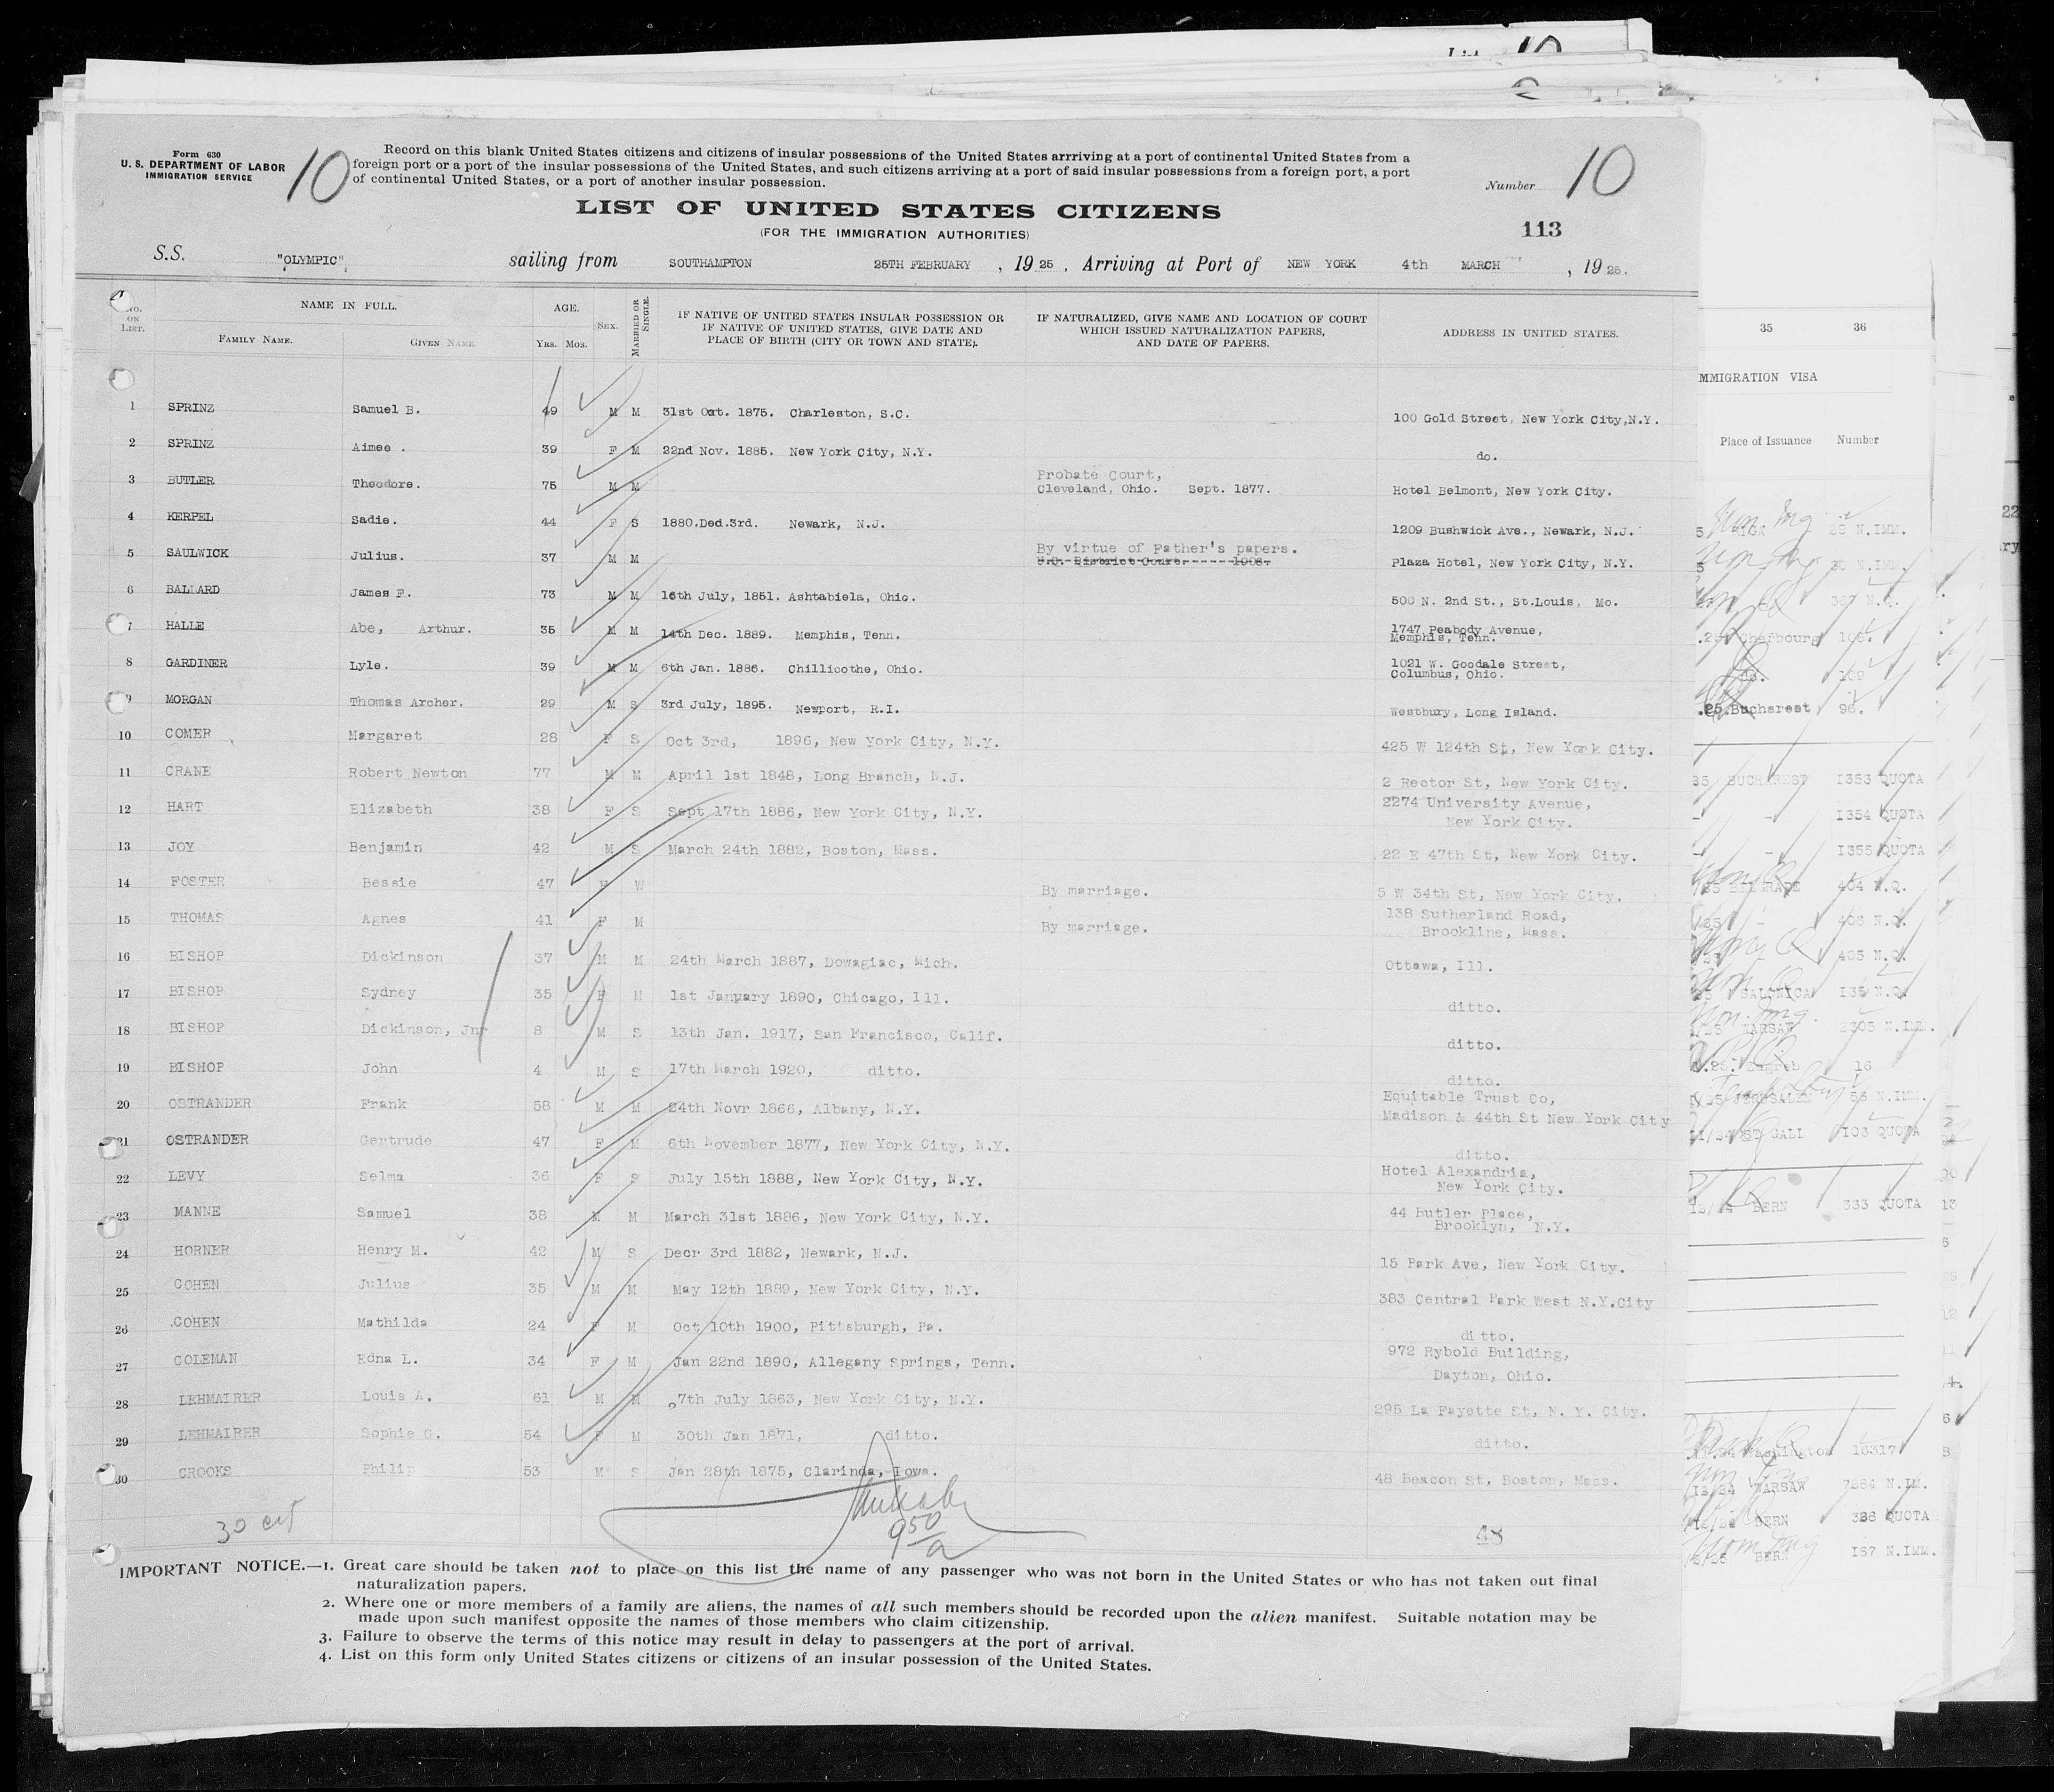 Form 630
U. S. DEPARTMENT OF LABOR
IMMIGRATION SERVICE
10
Record on this blank United States citizens and citizens of insular possessions of the United States arrriving at a port of continental United States from a
foreign port or a port of the insular possessions of the United States, and such citizens arriving at a port of said insular possessions from a foreign port, a port
of continental United States, or a port of another insular possession.
Number 10
LIST OF UNITED STATES CITIZENS
(FOR THE IMMIGRATION AUTHORITIES)
113
S.S. "OLYMPIC" sailing from SOUTHAMPTON 25TH FEBRUARY , 19 25 , Arriving at Port of NEW YORK 4th MARCH , 19 25.
No. ON LIST.
NAME IN FULL.
FAMILY NAME.
GIVEN NAME.
AGE.
YRS. MOS.
SEX.
MARRIED OR SINGLE.
IF NATIVE OF UNITED STATES INSULAR POSSESSION OR
IF NATIVE OF UNITED STATES, GIVE DATE AND
PLACE OF BIRTH (CITY OR TOWN AND STATE).
IF NATURALIZED, GIVE NAME AND LOCATION OF COURT
WHICH ISSUED NATURALIZATION PAPERS,
AND DATE OF PAPERS.
ADDRESS IN UNITED STATES.
1 SPRINZ Samuel B. 49 M M 31st Oct. 1875. Charleston, S.C. 100 Gold Street, New York City,N.Y.
2 SPRINZ Aimee . 39 F M 22nd Nov. 1885. New York City, N.Y. do.
3 BUTLER Theodore. 75 M M Probate Court,
Cleveland, Ohio. Sept. 1877. Hotel Belmont, New York City.
4 KERPEL Sadie. 44 F S 1880.Ded.3rd. Newark, N.J. 1209 Bushwick Ave., Newark, N.J.
5 SAULWICK Julius. 37 M M By virtue of Father's papers.
U.S. District Court. 1906. Plaza Hotel, New York City, N.Y.
6 BALLARD James F. 73 M M 16th July, 1851. Ashtabiela, Ohio. 500 N. 2nd St., St.Louis, Mo.
7 HALLE Abe, Arthur. 35 M M 14th Dec. 1889. Memphis, Tenn. 1747 Peabody Avenue,
Memphis, Tenn.
8 GARDINER Lyle. 39 M M 6th Jan. 1886. Chillicothe, Ohio. 1021 W. Goodale Street,
Columbus, Ohio.
9 MORGAN Thomas Archer. 29 M S 3rd July, 1895. Newport, R.I. Westbury, Long Island.
10 COMER Margaret 28 F S Oct 3rd, 1896, New York City, N.Y. 425 W 124th St, New York City.
11 CRANE Robert Newton 77 M M April 1st 1848, Long Branch, N.J. 2 Rector St, New York City.
12 HART Elizabeth 38 F S Sept 17th 1886, New York City, N.Y. 2274 University Avenue,
New York City.
13 JOY Benjamin 42 M S March 24th 1882, Boston, Mass. 22 E 47th St, New York City.
14 FOSTER Bessie 47 F W By marriage. 5 W 34th St, New York City.
15 THOMAS Agnes 41 F M By marriage. 138 Sutherland Road,
Brookline, Mass.
16 BISHOP Dickinson 37 M M 24th March 1887, Dowagiac, Mich. Ottawa, Ill.
17 BISHOP Sydney 35 F M 1st January 1890, Chicago, Ill. ditto.
18 BISHOP Dickinson, Jnr 8 M S 13th Jan. 1917, San Francisco, Calif. ditto.
19 BISHOP John 4 M S 17th March 1920, ditto. ditto.
20 OSTRANDER Frank 58 M M 24th Novr 1866, Albany, N.Y. Equitable Trust Co,
Madison & 44th St New York City
21 OSTRANDER Gertrude 47 F M 6th November 1877, New York City, N.Y. ditto.
22 LEVY Selma 36 F S July 15th 1888, New York City, N.Y. Hotel Alexandria,
New York City.
23 MANNE Samuel 38 M M March 31st 1886, New York City, N.Y. 44 Butler Place,
Brooklyn, N.Y.
24 HORNER Henry M. 42 M S Decr 3rd 1882, Newark, N.J. 15 Park Ave, New York City.
25 COHEN Julius 35 M M May 12th 1889, New York City, N.Y. 383 Central Park West N.Y.City
26 COHEN Mathilda 24 F M Oct 10th 1900, Pittsburgh, Pa. ditto.
27 COLEMAN Edna L. 34 F M Jan 22nd 1890, Allegany Springs, Tenn. 972 Rybold Building,
Dayton, Ohio.
28 LEHMAIRER Louis A. 61 M M 27th July 1863, New York City, N.Y. 295 La Fayette St, N. Y. City.
29 LEHMAIRER Sophie G. 54 F M 30th Jan 1871, ditto. ditto.
30 CROOKS Philip 53 M S Jan 28th 1875, Clarinda, Iowa. 48 Beacon St, Boston, Mass.
30 cit
950
48
IMPORTANT NOTICE.—1. Great care should be taken not to place on this list the name of any passenger who was not born in the United States or who has not taken out final
naturalization papers.
2. Where one or more members of a family are aliens, the names of all such members should be recorded upon the alien manifest. Suitable notation may be
made upon such manifest opposite the names of those members who claim citizenship.
3. Failure to observe the terms of this notice may result in delay to passengers at the port of arrival.
4. List on this form only United States citizens or citizens of an insular possession of the United States.
35 36
MMIGRATION VISA
Place of Issuance Number
RIGA 28 N.IMM.
30 N.IMM.
Cherbourg 108.
do. 109
25 Bucharest 96.
BUCHAREST 1353 QUOTA
- 1354 QUOTA
- 1355 QUOTA
BELGRADE 404 N.Q.
406 N.Q.
405 N.Q.
SALONICA
WARSAW N.IMM.
Zagreb 16
JERUSALEM 56 N.IMM.
ST GALL 103 QUOTA
BERN 333 QUOTA
Washington 16317
WARSAW 7264 N.IM.
BERN 326 QUOTA
BERN 167 N.IMM.